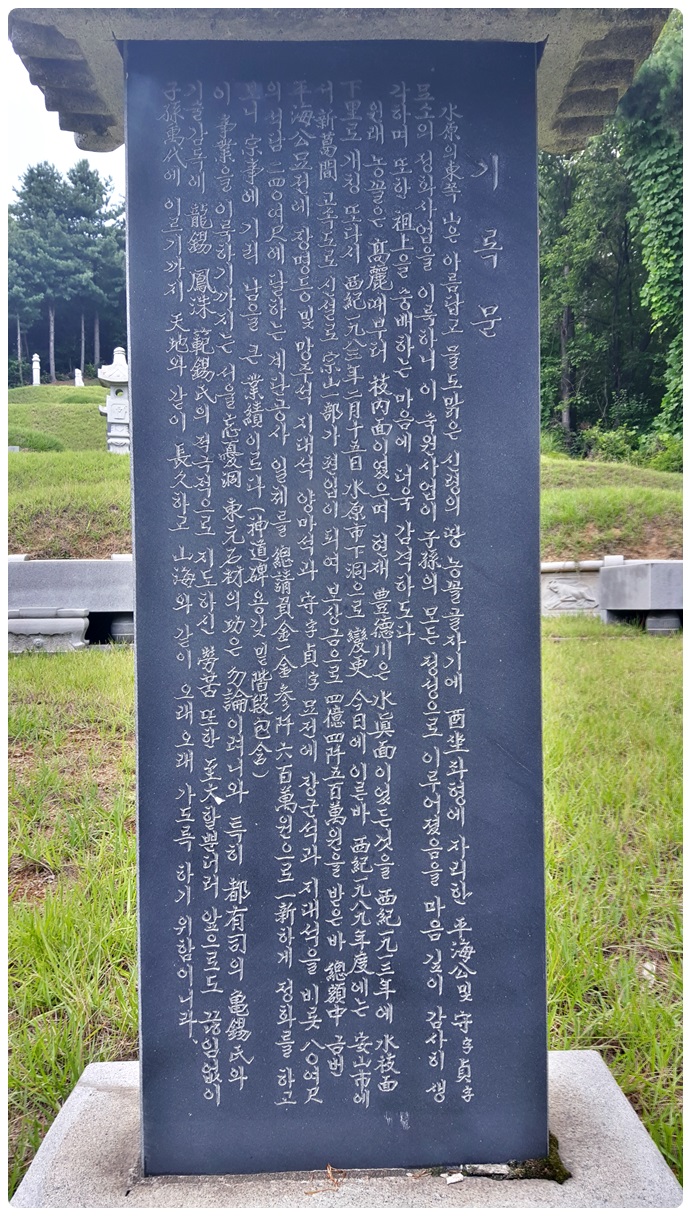 기록문
水原의 東쪽 山은 아름답고 물도 맑은 신령의 땅 농꼴 골자기에 酉坐 좌형에 자리한 平海公 및 守字貞字
묘소의 정화사업을 이룩하니 이 숙원사업이 子孫의 모든 정성으로 이루어졌음을 마음 깊이 감사히 생
각하며 또한 祖上을 숭배하는 마음에 더욱 감격하도다
원래 농꼴은 高麗때부터 枝內面이였으며 현재 豊德川은 水眞面이였든것을 西紀一九一三年에 水枝面
下里로 개칭 또다시 西紀一九八三年二月十五日 水原市下洞으로 變更 今日에 이른바 西紀一九八九年度에는 安山市에
서 新葛間 고속도로 신설로 宗山一部가 편입이 되여 보상금으로 四億四阡五百萬원을 받은바 總額中 금번
平海公 묘전에 장명등 및 망주석 지대석 양마석과 守字貞字 묘전에 장군석과 지대석을 비롯 八〇여尺
의 석남 二四〇여尺에 달하는 계단공사 일체를 總請負金 一金參阡六百萬원으로 一新하게 정화를 하고
보니 宗事에 기리 남을 큰 業績이로다 (神道碑용갓 및 階段包含)
이 事業을 이룩하기까지는 서울忘憂洞 東元石材의 功은 勿論이려니와 특히 都有司의 龜錫氏와
기술감독에 龍錫 鳳洙 範錫氏의 적극적으로 지도하신 勞苦 또한 至大할뿐더러 앞으로도 끊임없이
子孫萬代에 이르기까지 天地와 같이 長久하고 山海와 같이 오래오래 가도록 하기 위함이니라